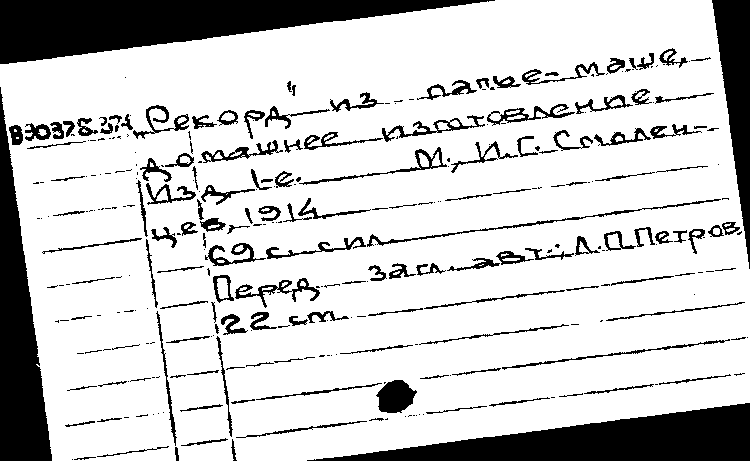 „Рекорд" из папье-маше,
домашнее изготовление.
Изд. 1-е. М., И.Г. Смолен-
цев, 1914.
69 с. с ил.
Перед загл. авт.: Л.П.Петров
22 см.